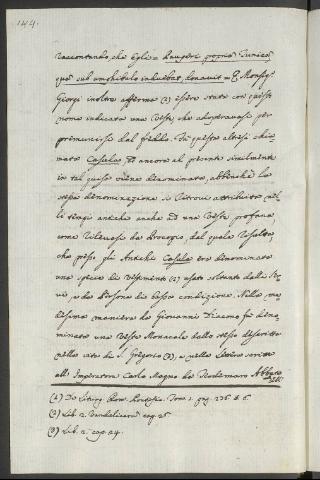 144.
raccontando, che Egli = Pauperi propria Tunica,
qua sub amphibulo induebat, donavit = Il Monsig.r
Giorgi inoltre afferma (1) essere stata con questo
nome indicata una Veste, che adopravasi per
premunirsi dal freddo. Fu questa altresì chia
mata Casula, ed ancora al presente similmente
in tal guisa viene denominata, abbenchè la
stessa denominazione si ritrovi attribuita nel
li tempi antichi anche ad una Veste profana
come rilevasi da Procopio, dal quale risulta,
che presso gli Antichi Casula era denominata
una specie di Vestimento (2) usato soltanto dalli Ser
vi, e da Persone di bassa condizione. Nella me
desima maniera da Giovanni Diacono fu deno
minata una Veste Monacale dallo stesso descritta
nella vita di S. Gregorio (3), e nella lettera scritta
all' Imperatore Carlo Magno da Teodemaro Abbate
(1) De Liturg. Rom. Pontific. Tom. 1. pag. 236. §. 6.
(2) Lib. 2. Vandalicorum cap. 26.
(3) Lib. 2. cap. 24.